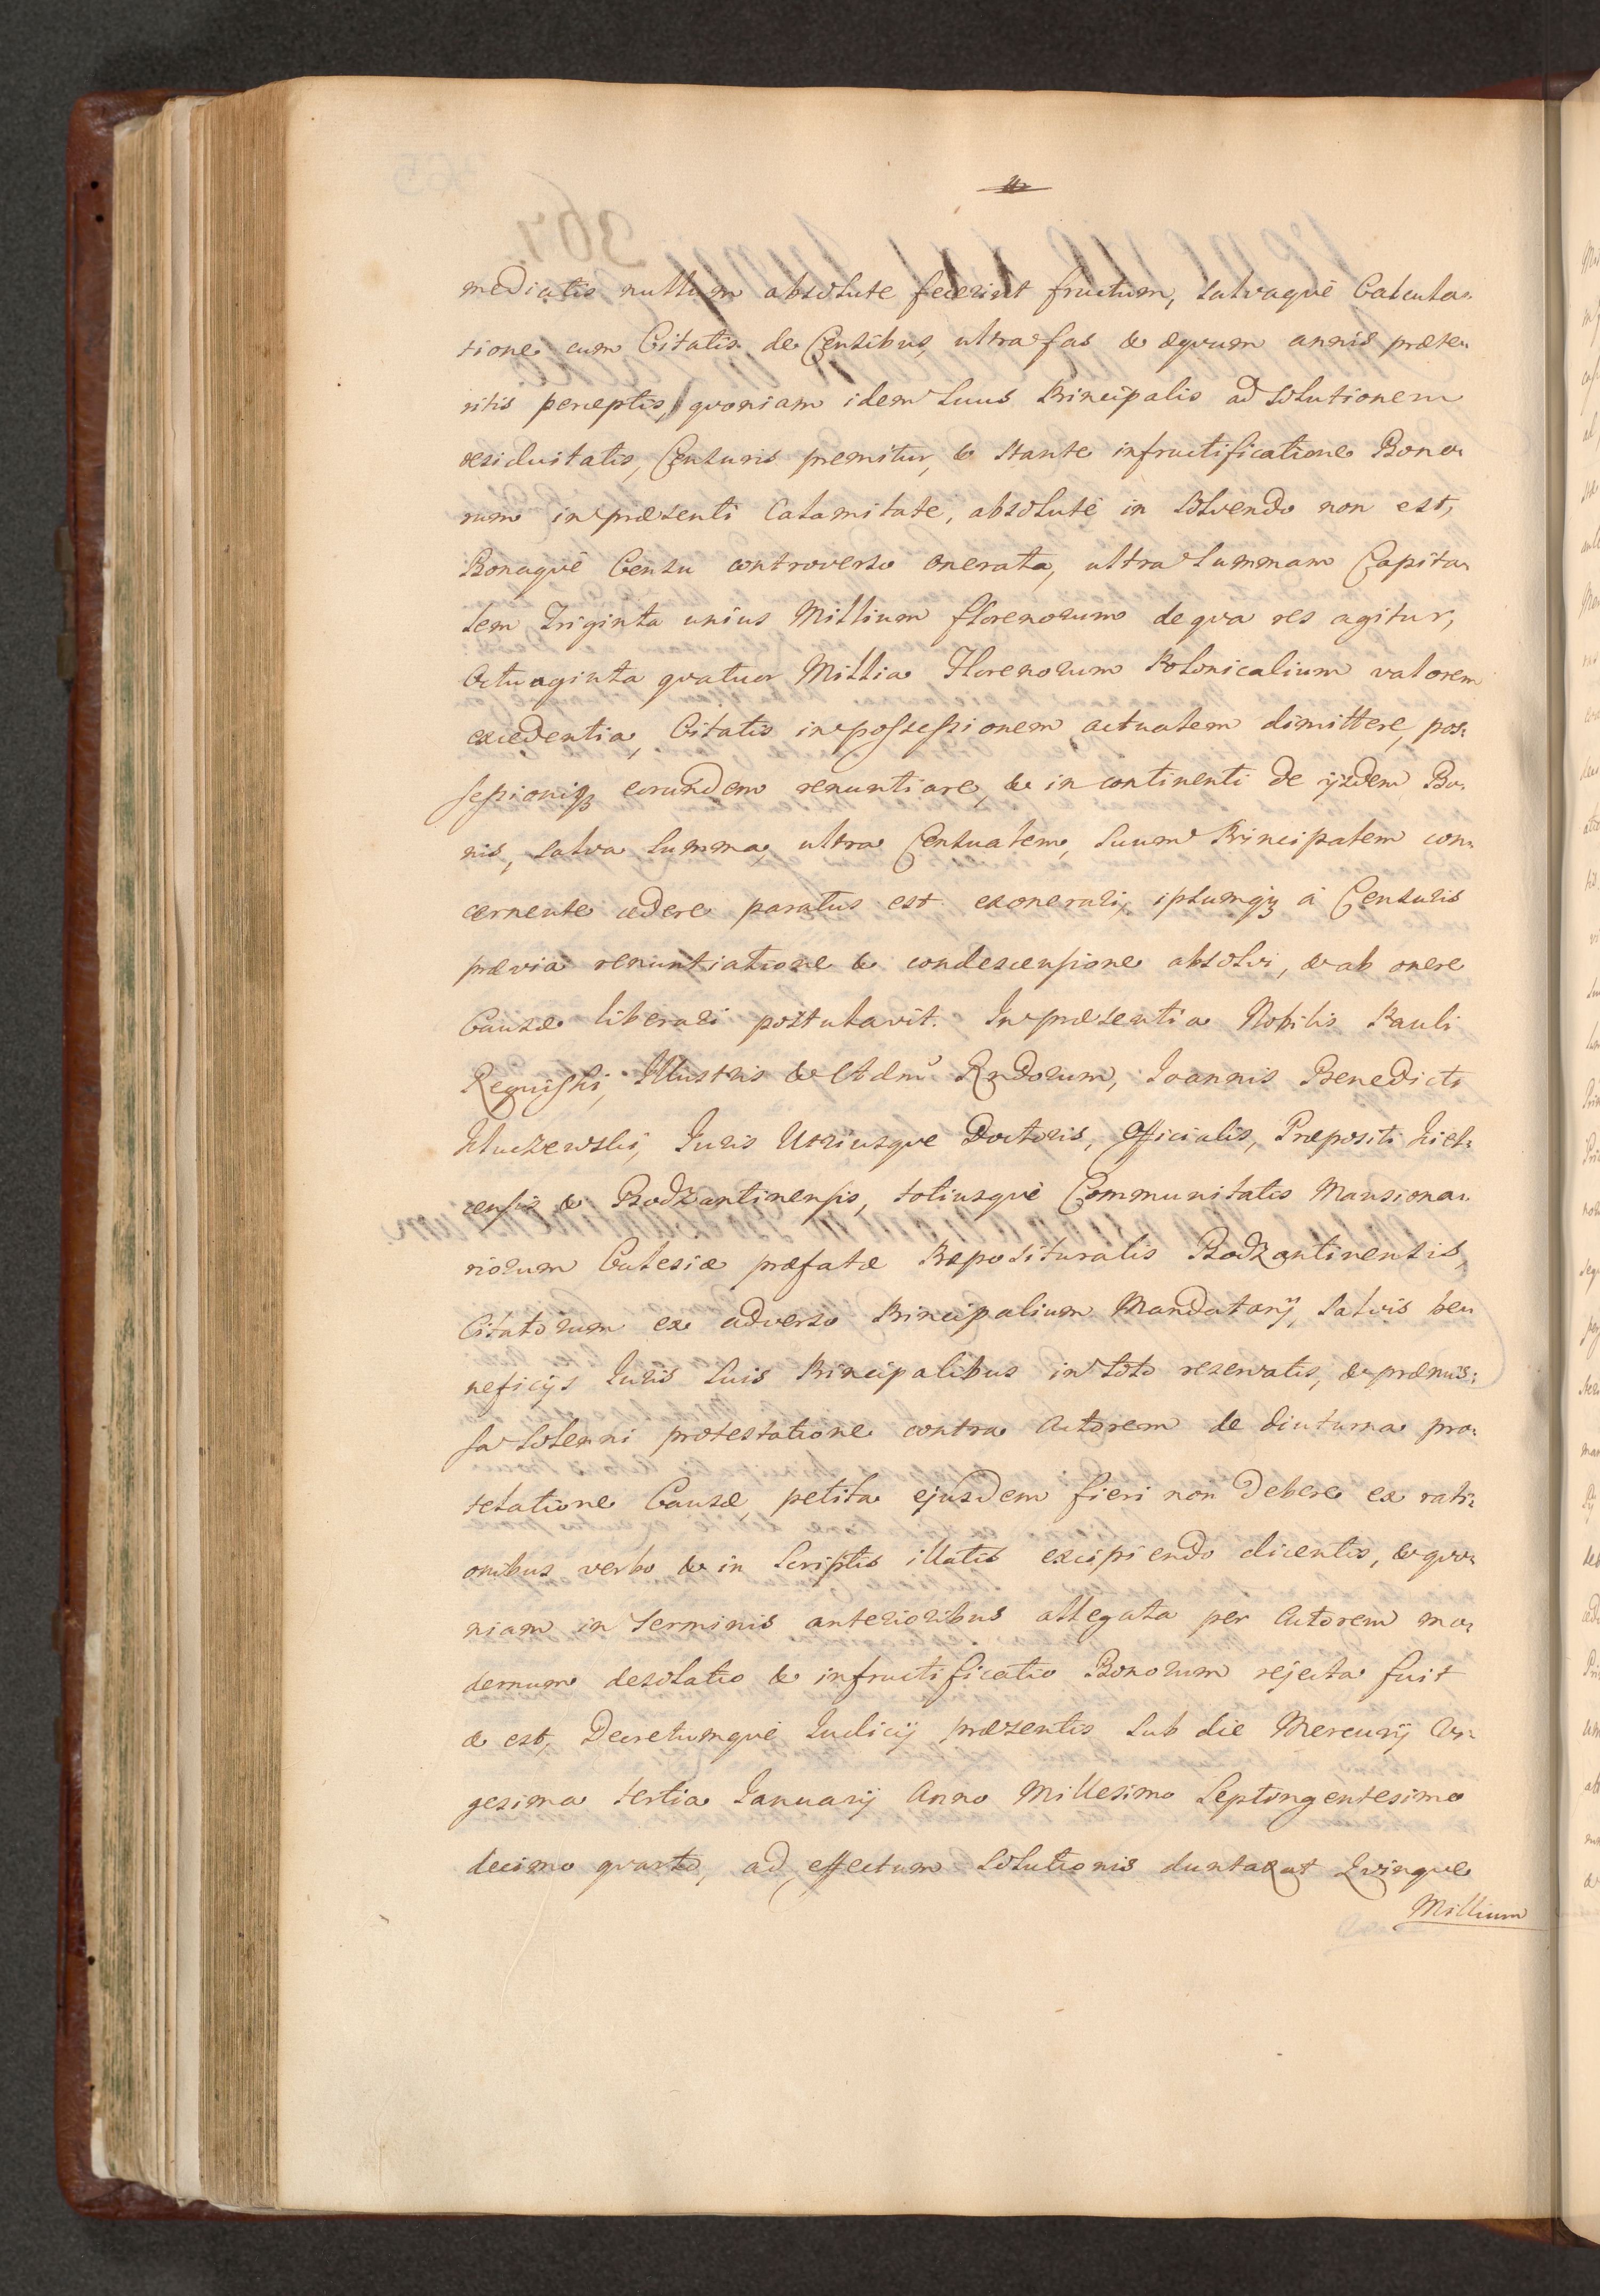 mediatis nullum absolute fecerint fructum, salvaquè Calcula-
tione cum Citatis de Censibus ultra fas & æqvum annis præte-
ritis perceptis, qvoniam idem Suus Principalis ad Solutionem
residuitatis, Censuris premitur, & stante infructificatione Bono-
rum in præsenti Calamitate, absolutè in Solvendo non est,
Bonaqvè Censu controverso onerata, ultra Summam Capita-
lem Triginta unius Millium florenorum de qva res agitur,
Octuaginta qvatuor Millia Florenorum Polonicalium valorem
excedentia, Citatis in possessionem actualem dimittere, pos-
sessioniq; eorundem renuntiare, & in continenti de ijsdem Bo-
nis, salva Summa, ultra Censualem, Suum Principalem con-
cernente cedere paratus est exonerari, ipsumq; à Censuris
prævia renuntiatione & condescensione absolvi, & ab onere
Causæ liberari postulavit. In præsentia Nobilis Pauli
Illustris & Adm Rndorum, Joannis Benedicti
Juris Utriusque Doctoris, Officialis, Præpositi Kiel-
censis & Bodzantinensis, totiusqvè Communitatis Mansiona-
riorum Eclesiæ præfatæ Præposituralis Bodzantinensis,
Citatorum ex adverso Principalium Mandatarij, Salvis be-
neficijs Juris Suis Principalibus in toto reservatis, & præmis-
sa Solenni protestatione contra Actorem de diuturna pro-
telatione Causæ, petita ejusdem fieri non debere ex rati-
onibus verbo & in Scriptis illatis excipiendo dicentis, & qvo-
niam in Terminis anterioribus allegata per Actorem mo-
dernum desolatio & infructificatio Bonorum rejecta fuit
& est, Decretumqvè Judicij præsentis Sub die Mercurij Vi-
gesima tertia Januarij Anno Millesimo Septingentesimo
decimo qvarto, ad effectum Solutionis duntaxat Qvinque
Millium